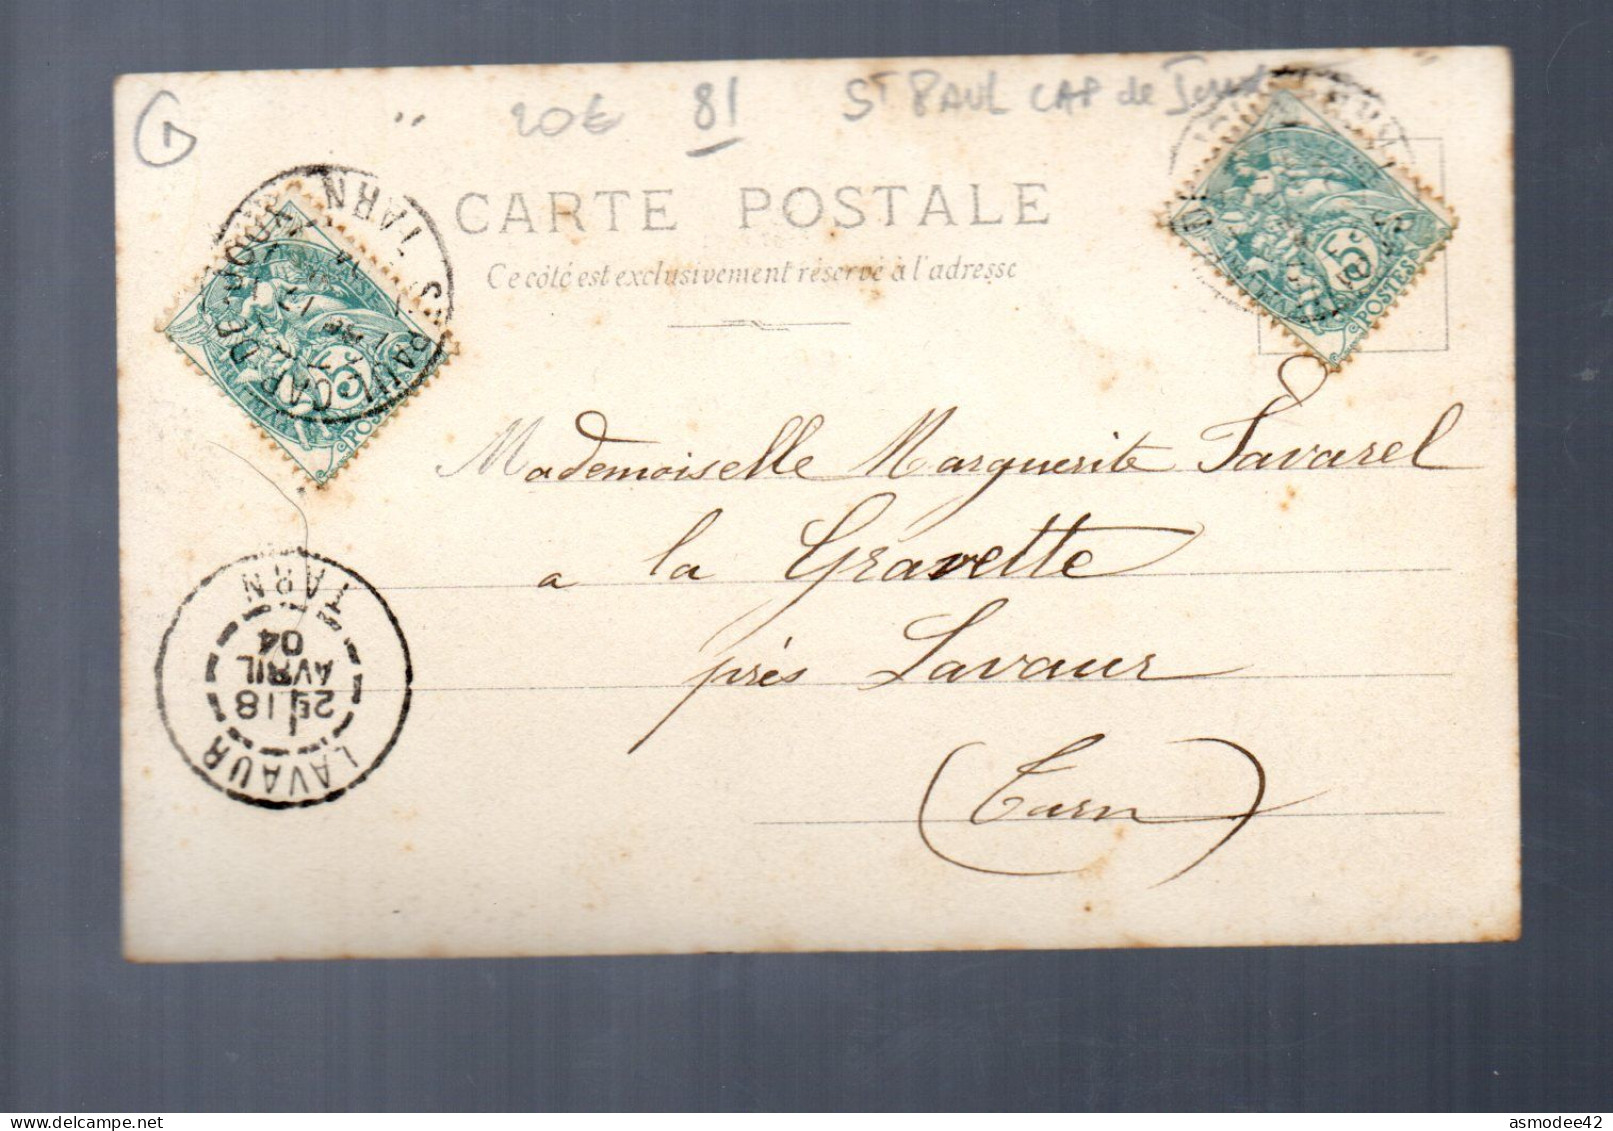 G
20€ 81 ST PAUL CAP de Joux
CARTE POSTALE
Ce côté est exclusivement réservé à l'adresse
ST PAUL CAP DE JOUX TARN
5c
POSTES
5c
POSTES
Mademoiselle Marguerite Tavarel
a la Gravette
près Lavaur
(Tarn)
LAVAUR TARN
2E 18
AVRIL
04
asmodee42